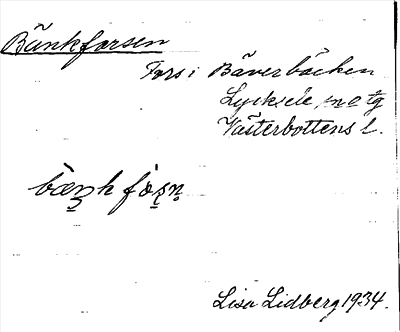 Bänkforsen
Fors i Bäverbäcken
Lycksele
Västerbottens l.
Lisa Lidberg 1934.